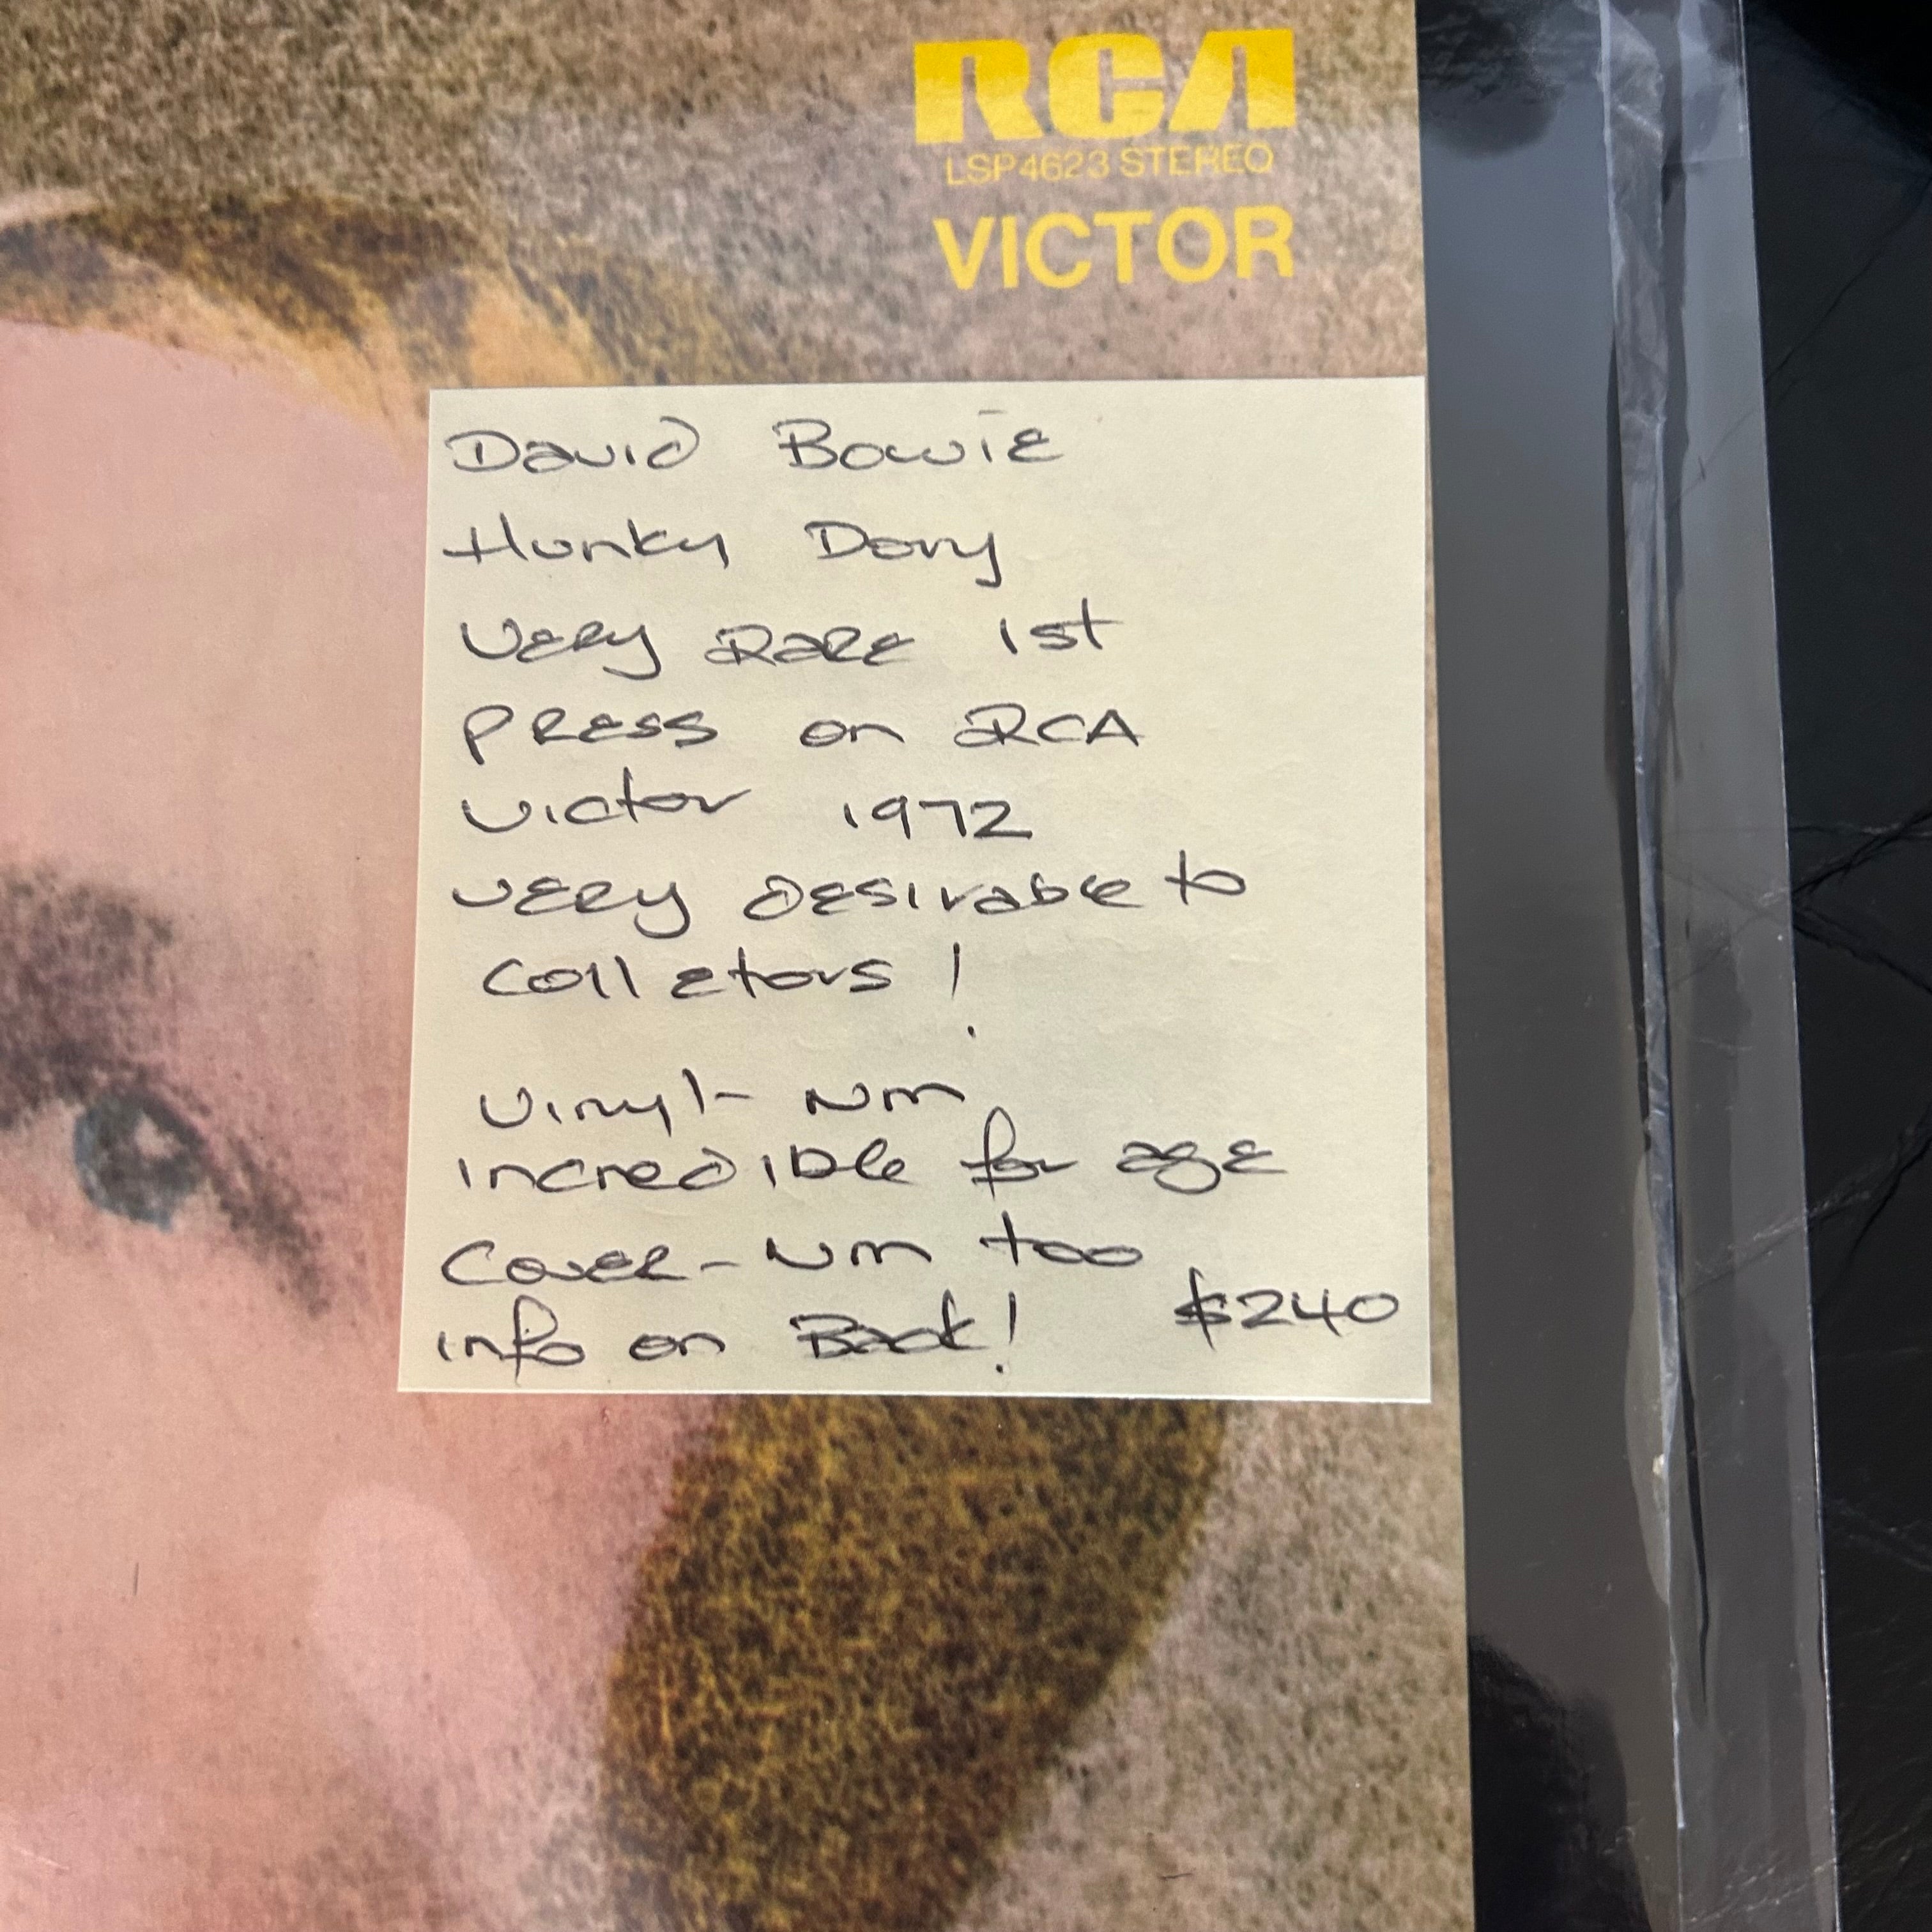 RCA
LSP4623 STEREO
VICTOR
David Bowie
Hunky Dory
Very Rare 1st
press on RCA
Victor 1972
very desirable to
colletors !
Vinyl- NM
incredible for age
Cover- NM too
info on Back! $240